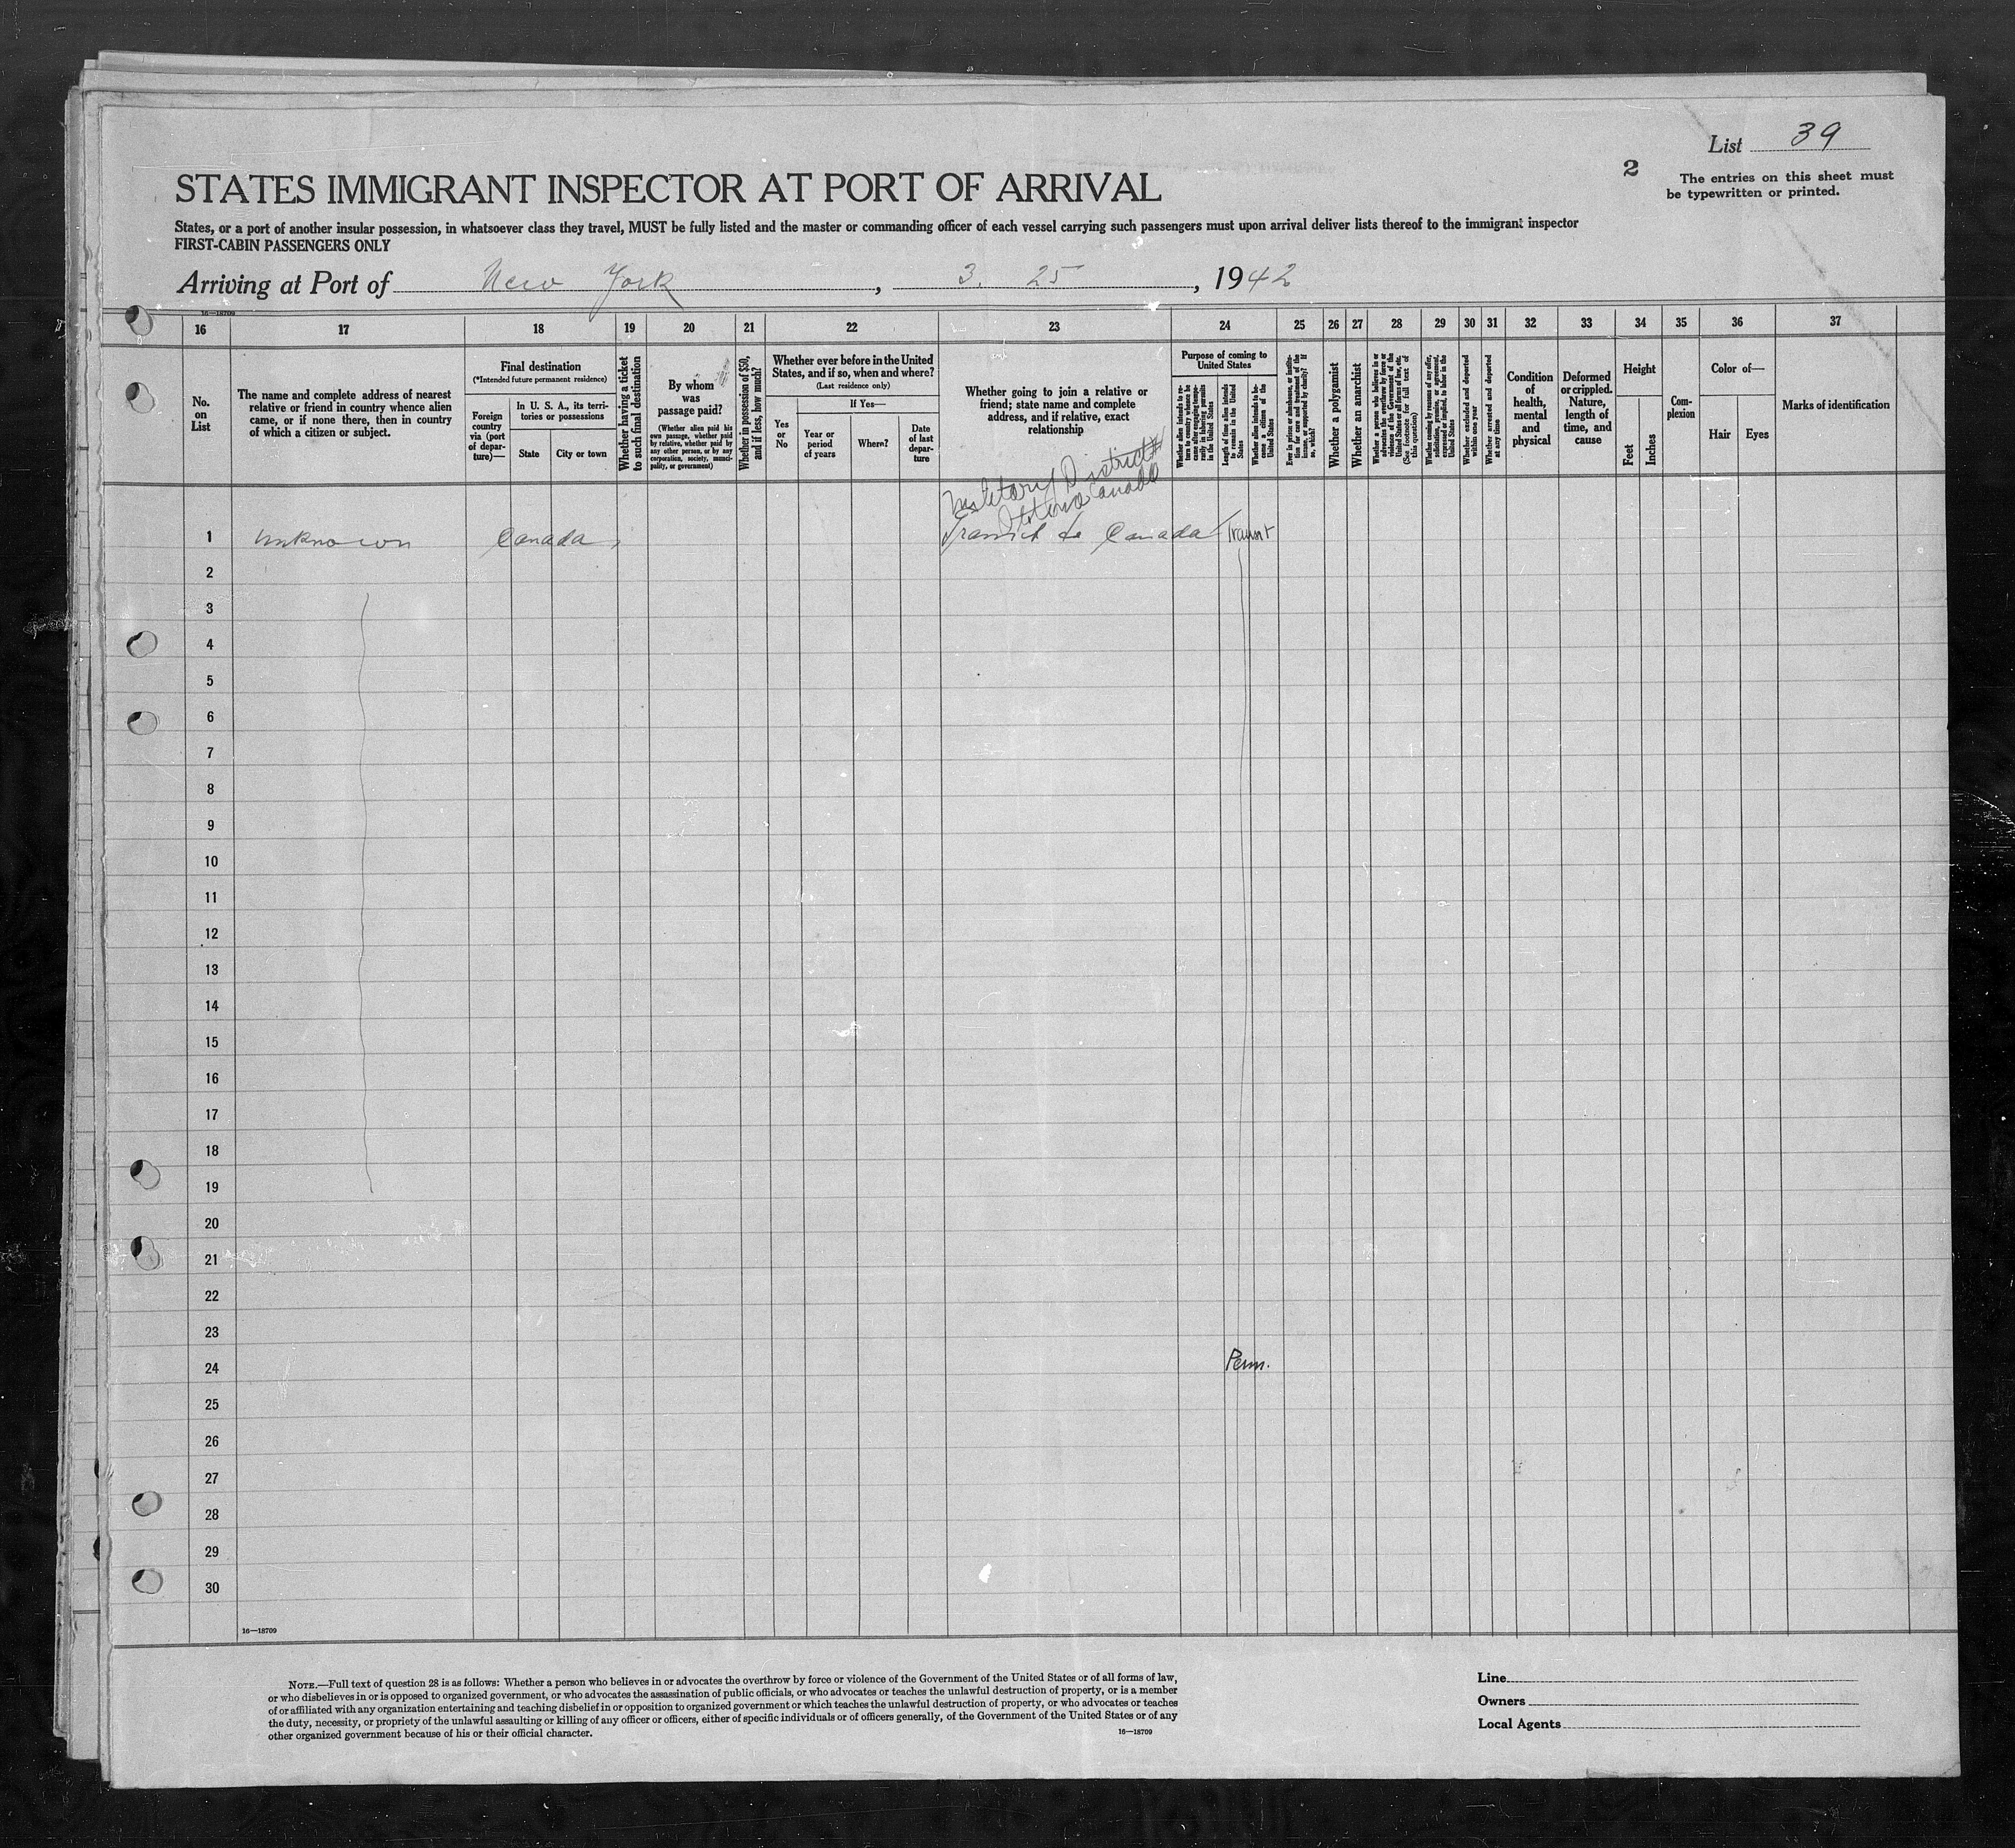 List 39
2
The entries on this sheet must
be typewritten or printed.
STATES IMMIGRANT INSPECTOR AT PORT OF ARRIVAL
States, or a port of another insular possession, in whatsoever class they travel, MUST be fully listed and the master or commanding officer of each vessel carrying such passengers must upon arrival deliver lists thereof to the immigrant inspector
FIRST-CABIN PASSENGERS ONLY
Arriving at Port of New York, 3. 25, 1942
16—18709
16 17 18 19 20 21 22 23 24 25 26 27 28 29 30 31 32 33 34 35 36 37
No.
on
List
The name and complete address of nearest
relative or friend in country whence alien
came, or if none there, then in country
of which a citizen or subject.
Final destination
(*Intended future permanent residence)
Foreign
country
via (port
of depar-
ture)—
In U. S. A., its terri-
tories or possessions
State
City or town
Whether having a ticket
to such final destination
By whom
was
passage paid?
(Whether alien paid his
own passage, whether paid
by relative, whether paid by
any other person, or by any
corporation, society, munici-
pality, or government)
Whether in possession of $50,
and if less, how much?
Whether ever before in the United
States, and if so, when and where?
(Last residence only)
If Yes—
Yes
or
No
Year or
period
of years
Where?
Date
of last
depar-
ture
Whether going to join a relative or
friend; state name and complete
address, and if relative, exact
relationship
Purpose of coming to
United States
Whether alien intends to re-
turn to country whence he
came after engaging tempo-
rarily in laboring pursuits
in the United States
Length of time alien intends
to remain in the United
States
Whether alien intends to be-
come a citizen of the
United States
Ever in prison or almshouse, or institu-
tion for care and treatment of the
insane, or supported by charity? If
so, which?
Whether a polygamist
Whether an anarchist
Whether a person who believes in or
advocates the overthrow by force or
violence of the Government of the
United States or all forms of law, etc.
(See footnote for full text of
this question)
Whether coming by reason of any offer,
solicitation, promise, or agreement,
expressed or implied, to labor in the
United States
Whether excluded and deported
within one year
Whether arrested and deported
at any time
Condition
of
health,
mental
and
physical
Deformed
or crippled.
Nature,
length of
time, and
cause
Height
Feet
Inches
Com-
plexion
Color of—
Hair
Eyes
Marks of identification
Military District #
Ottawa Canada
1 Unknown Canada, Transit to Canada Transit
2
3
4
5
6
7
8
9
10
11
12
13
14
15
16
17
18
19
20
21
22
23
24 Perm.
25
26
27
28
29
30
16—18709
NOTE.—Full text of question 28 is as follows: Whether a person who believes in or advocates the overthrow by force or violence of the Government of the United States or of all forms of law,
or who disbelieves in or is opposed to organized government, or who advocates the assassination of public officials, or who advocates or teaches the unlawful destruction of property, or is a member
of or affiliated with any organization entertaining and teaching disbelief in or opposition to organized government or which teaches the unlawful destruction of property, or who advocates or teaches
the duty, necessity, or propriety of the unlawful assaulting or killing of any officer or officers, either of specific individuals or of officers generally, of the Government of the United States or of any
other organized government because of his or their official character.
16—18709
Line
Owners
Local Agents